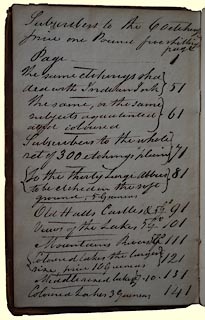 Subscribers to the 60 etchings
price one Pound five shillings
page
Page 1
The same etchings sha
ded with Indian Ink 51
The same, or the same
subjects aquatinted
and or coloured 61
Subscribers to the whole
set of 300 etchings plain 71
to the thirty large
to be etched in the soft 81
ground, 5 Guineas
Old Halls Castles &c 91
Views of the Lakes 101
Mountains 111
Coloured Lakes the largest
size, price 10 Guineas 121
Middle sized 131
Coloured Lakes 3 Guineas 141